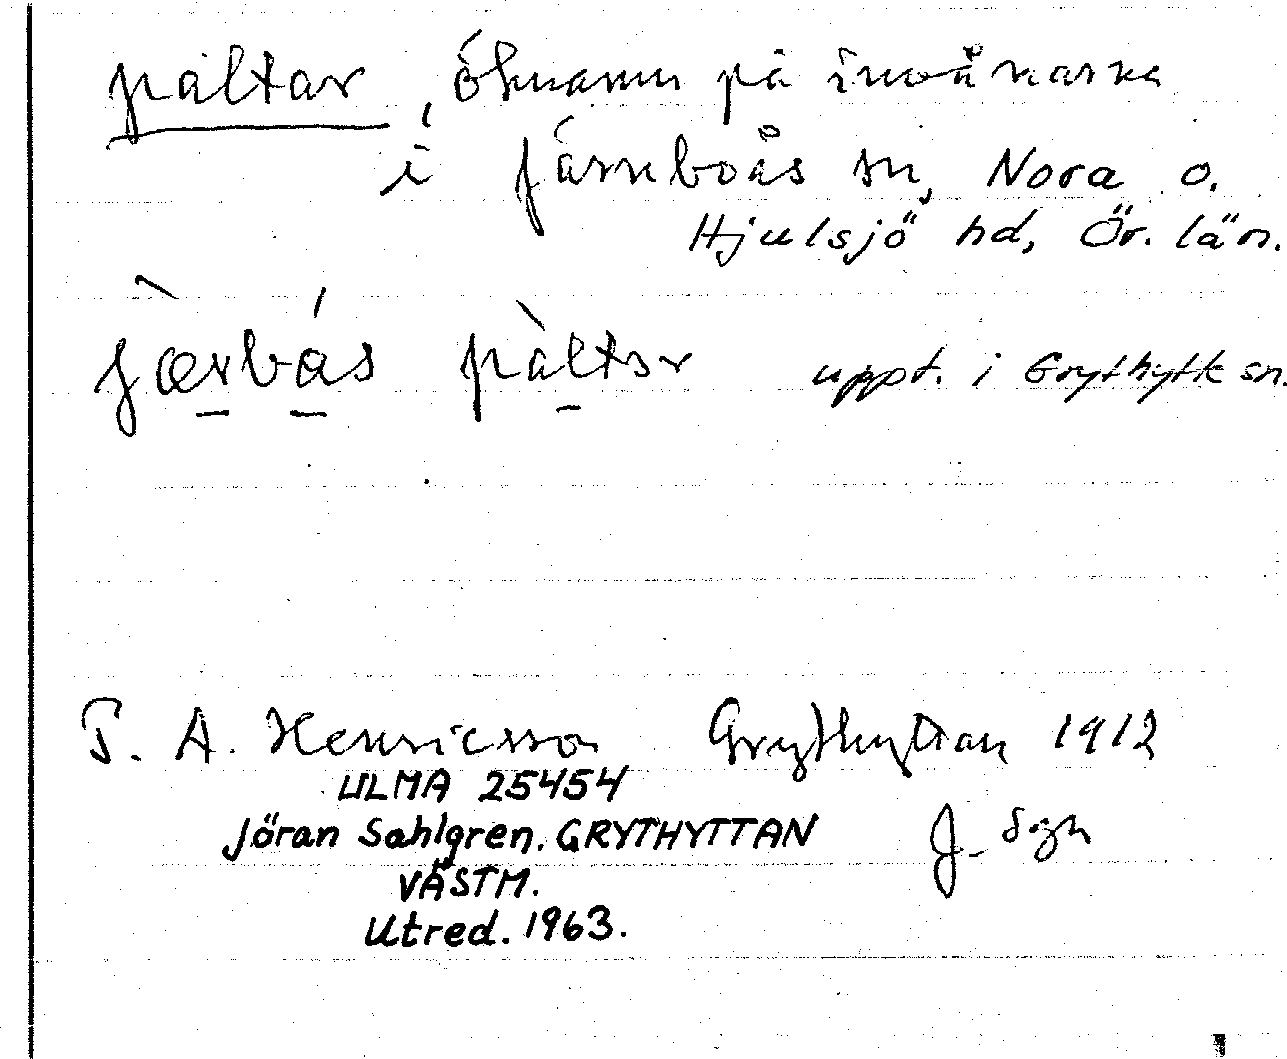 paltar, öknamn på invånarna
i Järnboås sn, Nora o.
Hjulsjö hd, Ör. län.
jæ̀rbás pàltar uppt. i Grythytte sn.
T. A. Henricsson Grythyttan 1912
ULMA 25454
Jöran Sahlgren. GRYTHYTTAN J. Sgn
VÄSTM.
Utred. 1963.